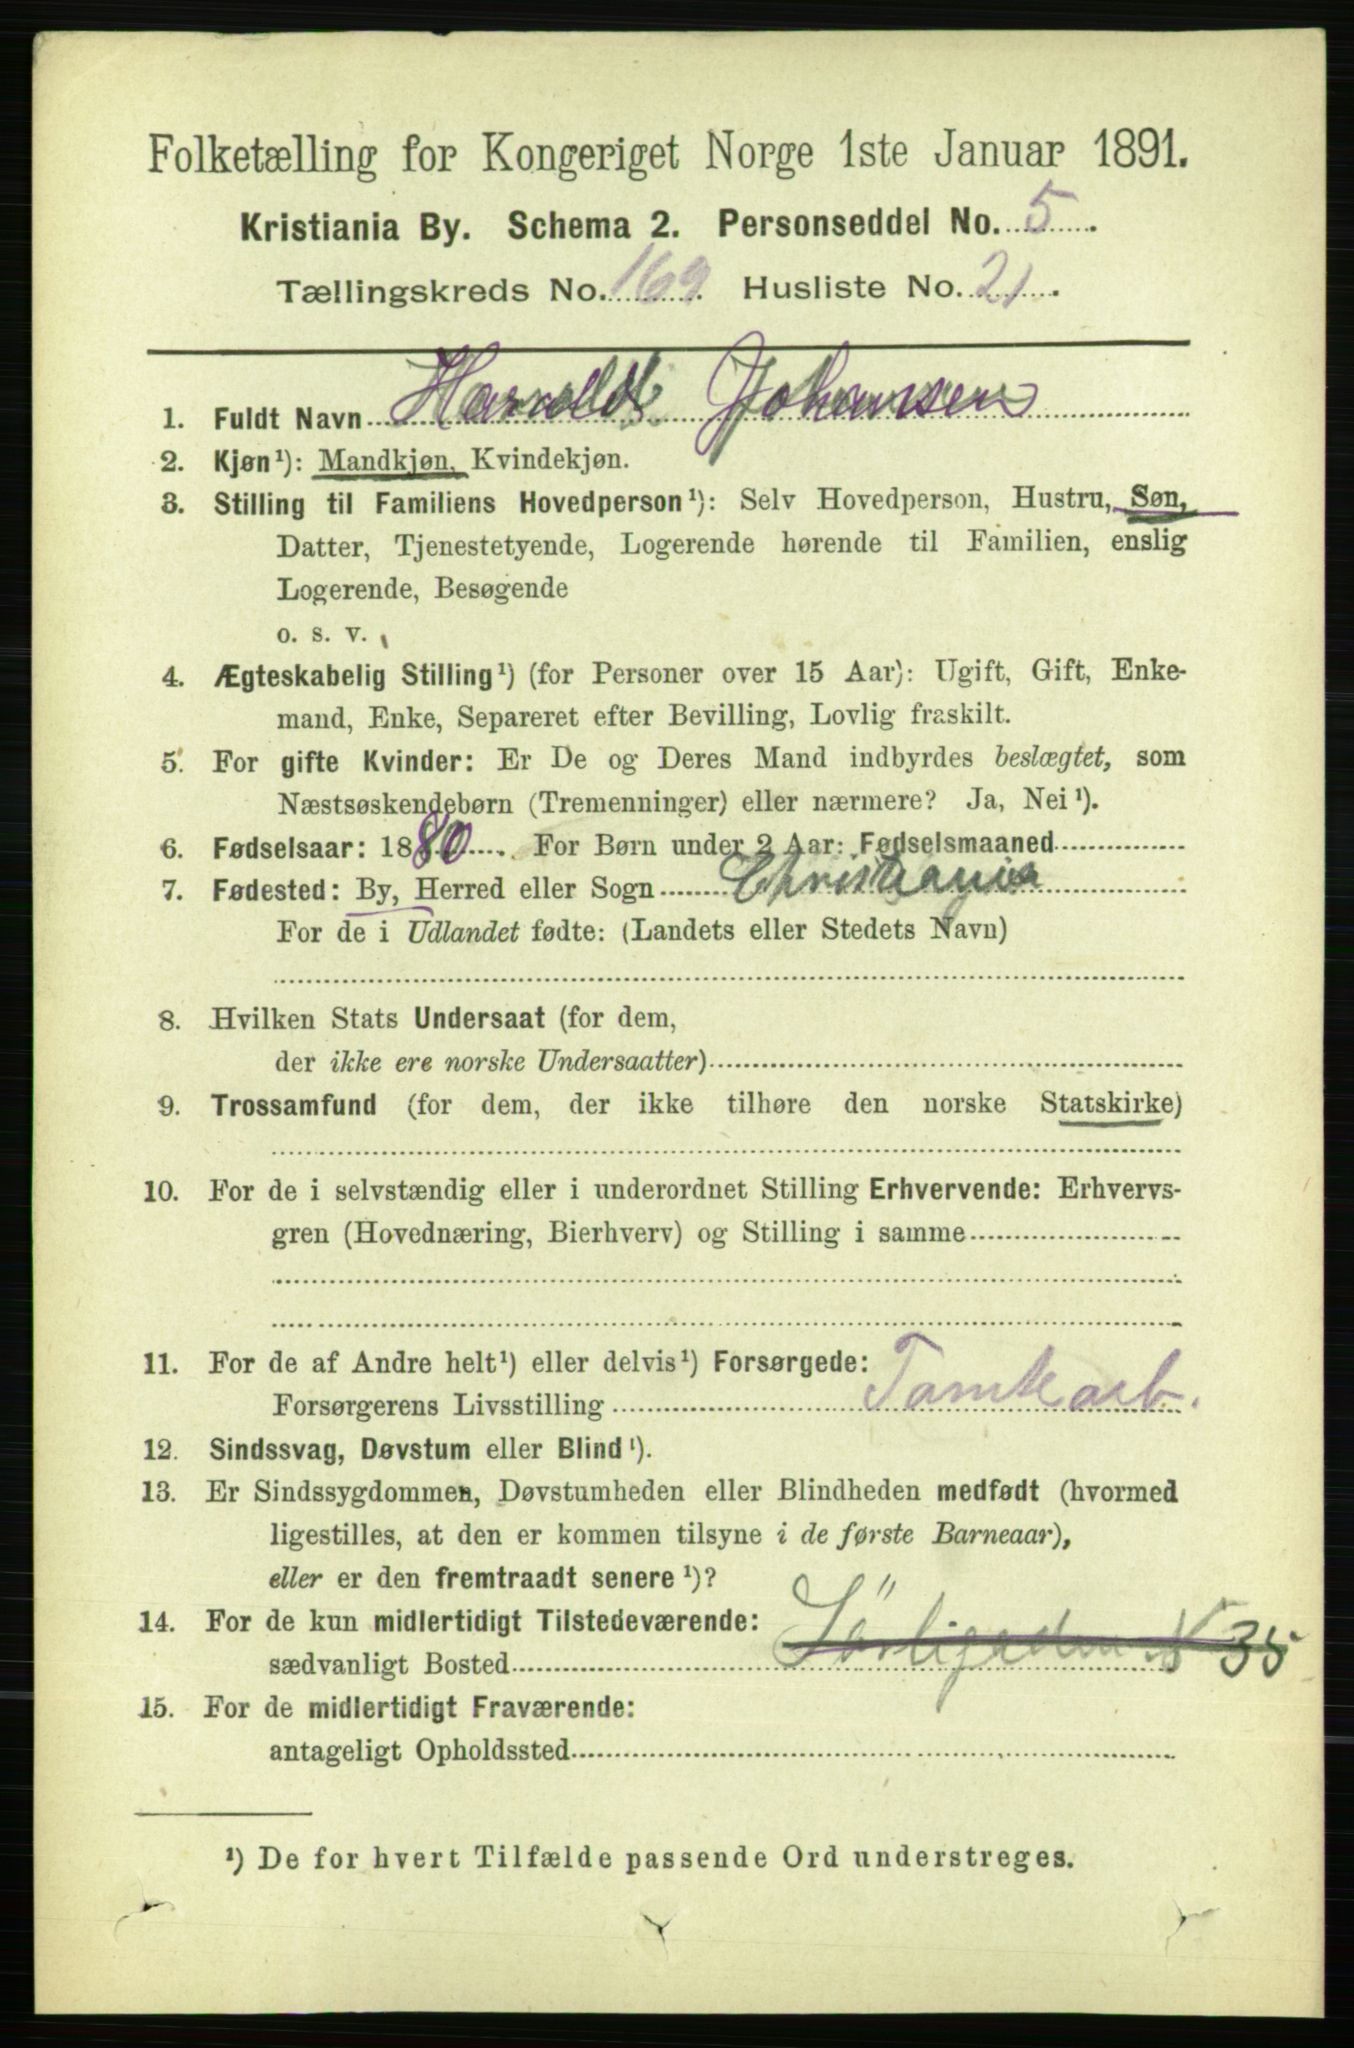 Folketælling for Kongeriget Norge 1ste Januar 1891.
Kristiania By. Schema 2. Personseddel No. 5.
Tællingskreds No. 169. Husliste No. 21.
1. Fuldt Navn Harald Johansen
2. Kjøn¹): Mandkjøn, Kvindekjøn.
3. Stilling til Familiens Hovedperson¹): Selv Hovedperson, Hustru, Søn,
Datter, Tjenestetyende, Logerende hørende til Familien, enslig
Logerende, Besøgende
o. s. v.
4. Ægteskabelig Stilling¹) (for Personer over 15 Aar): Ugift, Gift, Enke-
mand, Enke, Separeret efter Bevilling, Lovlig fraskilt.
5. For gifte Kvinder: Er De og Deres Mand indbyrdes beslægtet, som
Næstsøskendebørn (Tremenninger) eller nærmere? Ja, Nei¹).
6. Fødselsaar: 1880. For Børn under 2 Aar: Fødselsmaaned
7. Fødested: By, Herred eller Sogn Christiania
For de i Udlandet fødte: (Landets eller Stedets Navn)
8. Hvilken Stats Undersaat (for dem,
der ikke ere norske Undersaatter)
9. Trossamfund (for dem, der ikke tilhøre den norske Statskirke)
10. For de i selvstændig eller i underordnet Stilling Erhvervende: Erhvervs-
gren (Hovednæring, Bierhverv) og Stilling i samme
11. For de af Andre helt¹) eller delvis¹) Forsørgede:
Forsørgerens Livsstilling Tomtearb.
12. Sindssvag, Døvstum eller Blind¹).
13. Er Sindssygdommen, Døvstumheden eller Blindheden medfødt (hvormed
ligestilles, at den er kommen tilsyne i de første Barneaar),
eller er den fremtraadt senere¹)?
14. For de kun midlertidigt Tilstedeværende:
sædvanligt Bosted Sörligaden N 35
15. For de midlertidigt Fraværende:
antageligt Opholdssted
¹) De for hvert Tilfælde passende Ord understreges.